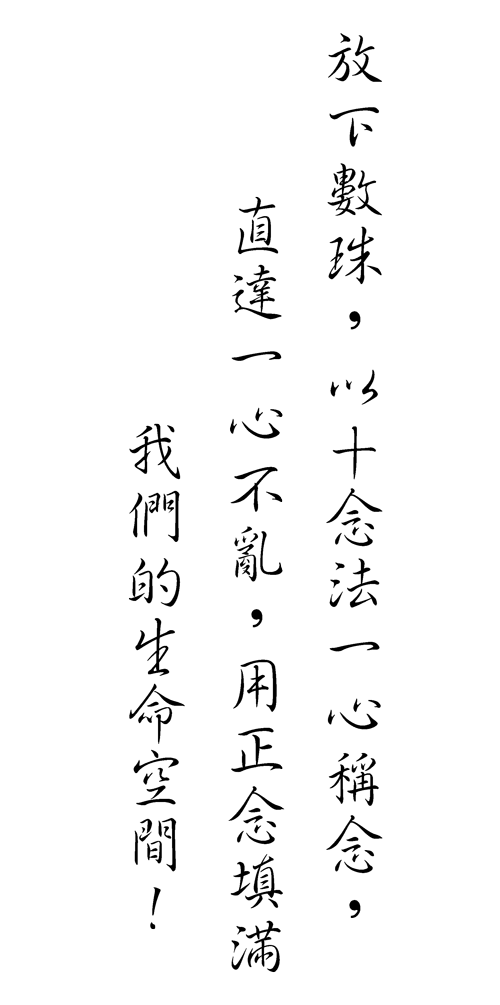 放下數珠，以十念法一心稱念，
直達一心不亂，用正念填滿
我們的生命空間！